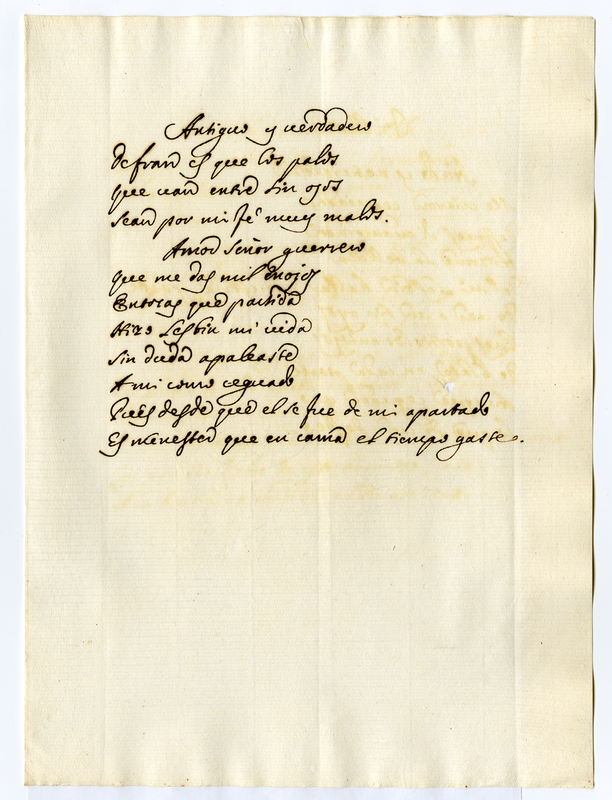 Antiguo y verdadero
Refran es que los palos
que uan entre sin ojos
sean por mi fé muy malos.
Amor señor guerrero
que me das mil enojos
Entoras que partida
Hizo Lesbin mi uida
sin duda apaleaste
A mi como ceguedo
Pues desde que el se fue de mi apartado
Es menester que en cama el tiempo gaste.